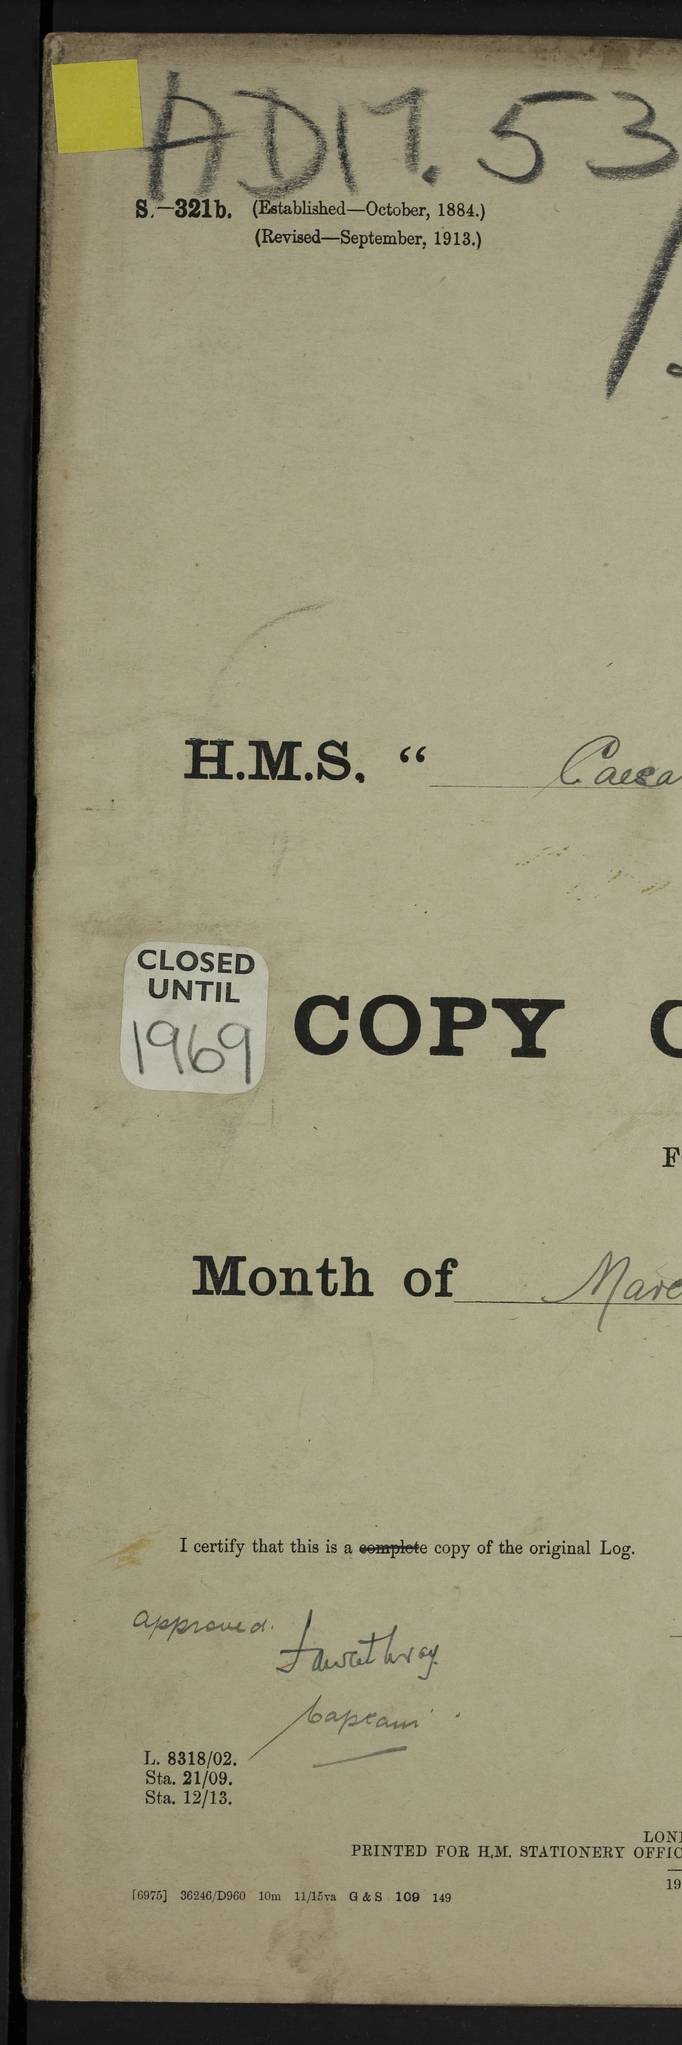 ADM. 53
S.—321b. (Established—October, 1884.)
(Revised—September, 1913.)
H.M.S. “ Caesa
CLOSED
UNTIL
1969
COPY O
F
Month of Marc
I certify that this is a complete copy of the original Log.
approved.
Captain
L. 8318/02.
Sta. 21/09.
Sta. 12/13.
LON
PRINTED FOR H.M. STATIONERY OFFIC
19
[6975] 36246/D960 10m 11/15va G & S 109 149